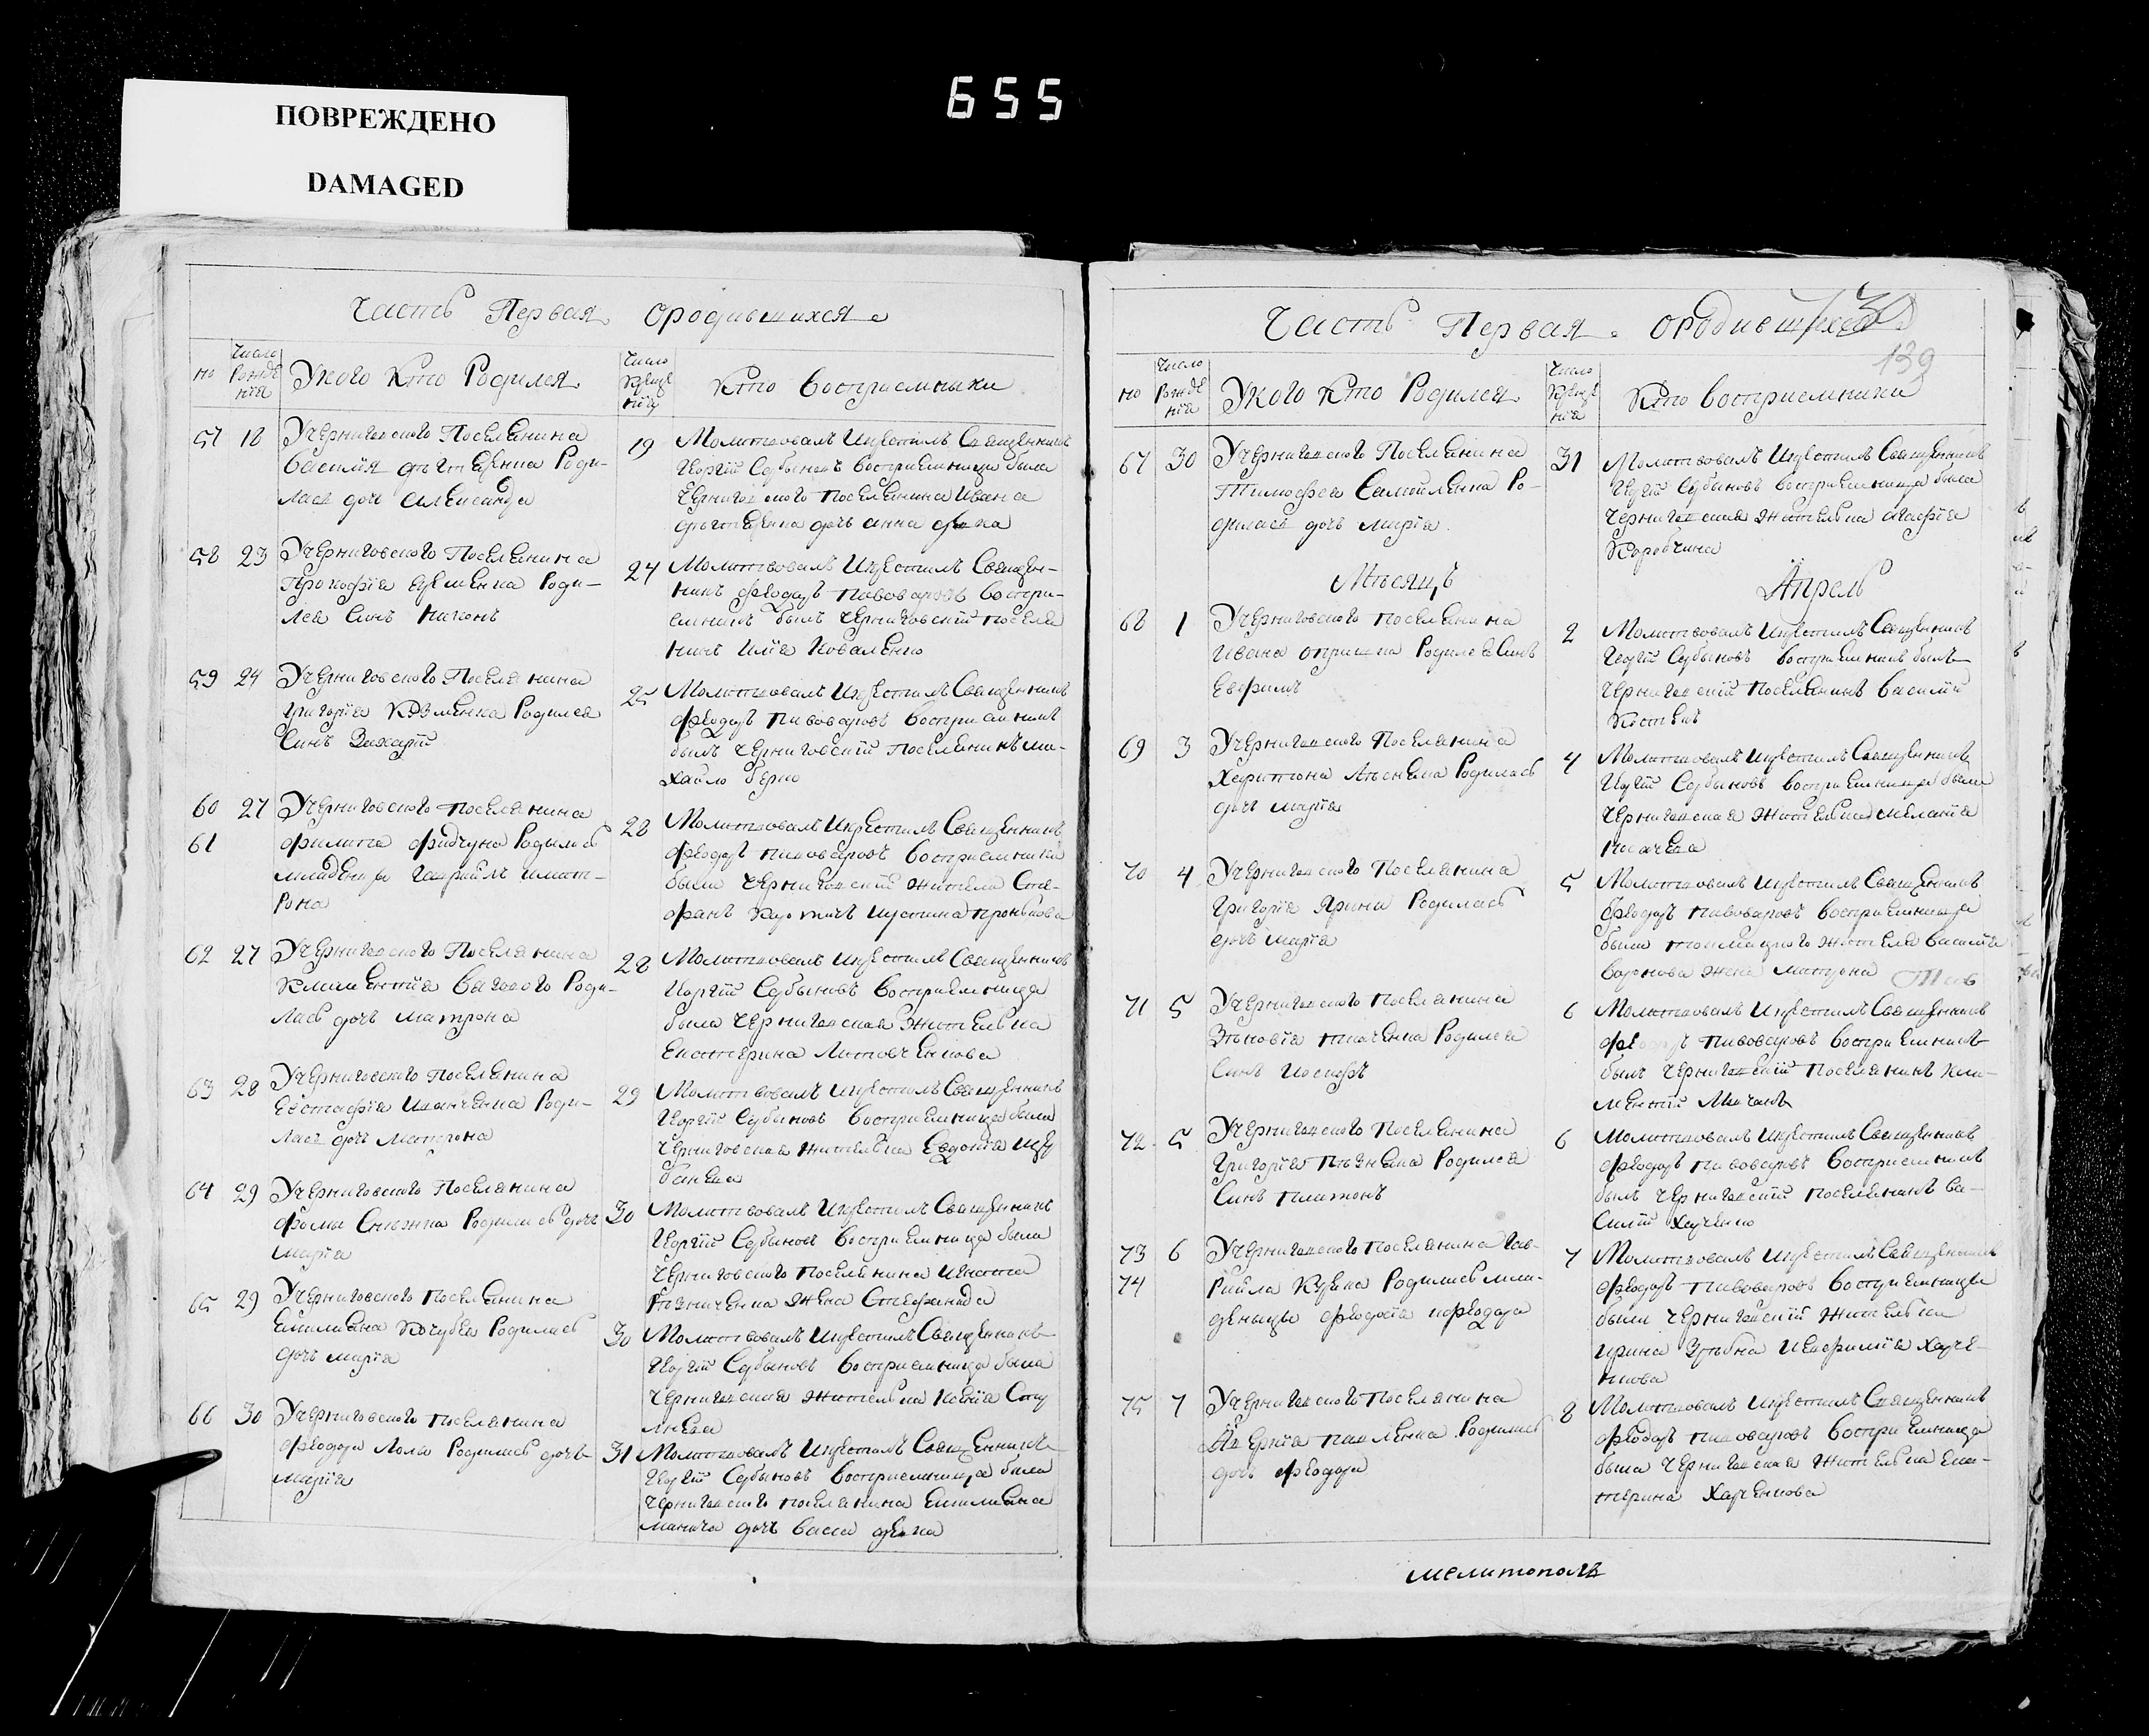 655
ПОВРЕЖДЕНО
DAMAGED
Часть Первая ородившихся
но
Число Рождѣнїя
Укого Кто Родился
Число Крещенїя
Кто восприемники
57 18 Учерниговского Поселянина
Василия Роди-
лась дочь Александра
19 Молитвовалъ Икрестилъ Священникъ
Георгїй Сербыновъ восприемница была
Черниговского поселянина Ивана
дочь анна девка
58 23 Учерниговского Поселянина
Прокофїя Еременка Роди-
лся Синъ Никонъ
24 Молитвовалъ Икрестилъ Священ-
никъ Феодоръ Пивоваровъ воспри-
емникъ былъ Черниговскїй поселя
нинъ Илїя Коваленко
59 24 Учерниговского Поселянина
Григорїя Кузменка Родился
Синъ Захарїй
25 Молитвовалъ Икрестилъ Священникъ
Феодоръ Пивоваровъ восприемникъ
былъ Черниговскїй Поселянинъ ми-
хайло
60 27 Учерниговского поселянина
61 Филипа Родылись
младенцы Гаврїилъ имат-
рона
28 Молитвовалъ Икрестилъ Священникъ
Феодоръ пивоваровъ восприемники
были Черниговскїй жители Сте-
фанъ Иустина
62 27 Учерниговского Поселянина
Климентїя Роди-
лась дочь матрона
28 Молитвовалъ Икрестилъ Священникъ
Георгїй Сербыновъ восприемница
была Черниговская жителька
Екатерина Литовченкова
63 28 Учерниговского Поселянина
Евстафїя Иванченка Роди-
лась дочь Матрона
29 Молитвовалъ Икрестилъ Священникъ
Георгїй Сербыновъ восприемница была
Черниговская жителька Евдокїя Щер
банева
64 29 Учерниговского Поселянина
Фомы Родилась дочь
Марїя
30 Молитвовалъ Икрестилъ Священникъ
Георгїй Сербыновъ восприемница была
Черниговского Поселянина Игната
жена Стефанида
65 29 Учерниговского Поселянина
Емилияна Кочубея Родилась
дочь марїя
30 Молитвовалъ Икрестилъ Священникъ
Георгїй Сербыновъ восприемница была
Черниговская жителька Ксенїя
66 30 Учерниговского поселянина
Феодора Лолы Родилась дочь
марїя
31 Молитвовалъ Икрестилъ Священникъ
Георгїй Сербыновъ восприемница была
Черниговского поселянина Емилияна
дочь васса девка
Часть Первая ородившихся
139
но
Число Рождѣнїя
Укого Кто Родился
Число Крещенїя
Кто восприемники
67 30 Учерниговского Поселянина
Тимофея Самойленка Ро-
дилась дочь марїя
31 Молитвовалъ Икрестилъ Священникъ
Георгїй Сербыновъ восприемница была
Черниговская жителька агафїя
Коробчина
Мѣсяцъ Апрель
68 1 Учерниговского поселянина
Ивана Родился Синъ
Ефремъ
2 Молитвовалъ Икрестилъ Священникъ
Георгїй Сербыновъ восприемникъ былъ
Черниговскїй Поселянинъ василїй
69 3 Учерниговского Поселянина
Харитона Родилась
дочь марїя
4 Молитвовалъ Икрестилъ Священникъ
Георгїй Сербыновъ восприемница была
Черниговская жителька меланїя
70 4 Учерниговского Поселянина
Григорїя Ярина Родилась
дочь марїя
5 Молитвовалъ Икрестилъ Священникъ
Феодоръ пивоваровъ восприемница
была токмацкого жителя василїя
воронова жена матрона
71 5 Учерниговского Поселянина
Зѣновїя Ткаченка Родился
Синъ Иосифъ
6 Молитвовалъ Икрестилъ Священникъ
Феодоръ пивоваровъ восприемникъ
былъ Черниговскїй поселянинъ кли-
ментїй
72 5 Учерниговского Поселянина
Григорїя Родился
Синъ платонъ
6 Молитвовалъ Икрестилъ Священникъ
Феодоръ пивоваровъ восприемникъ
былъ Черниговскїй поселянинъ ва-
силїй Харченко
73 6 Учерниговского поселянина Гав-
74 рїила Родились мла-
денцы феодосїя ифеодора
7 Молитвовалъ Икрестилъ Священникъ
Феодоръ Пивоваровъ восприемницы
были Черниговскїй жительки
ирина Иевфимїя Харче-
нкова
75 7 Учерниговского Поселянина
Аверкїя павленка Родилась
дочь феодора
8 Молитвовалъ Икрестилъ Священникъ
Феодоръ пивоваровъ восприемница
была Черниговская жителька Ека-
терина Харченкова
мелитополь